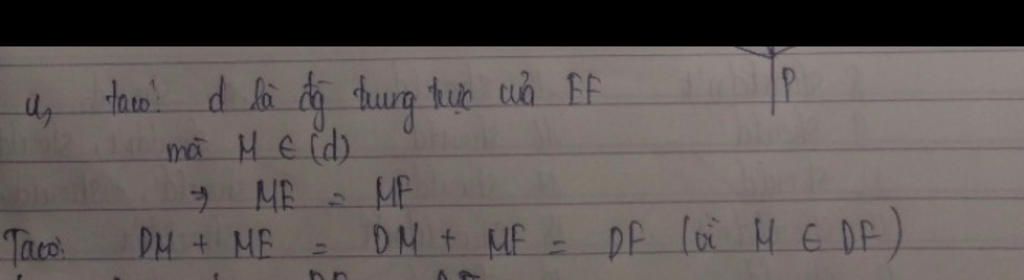 P
a, taco: d là đg trung trực của EF
mà M ∈ (d)
→ ME = MF
Taco: DM + ME = DM + MF = DF (vì M ∈ DF)